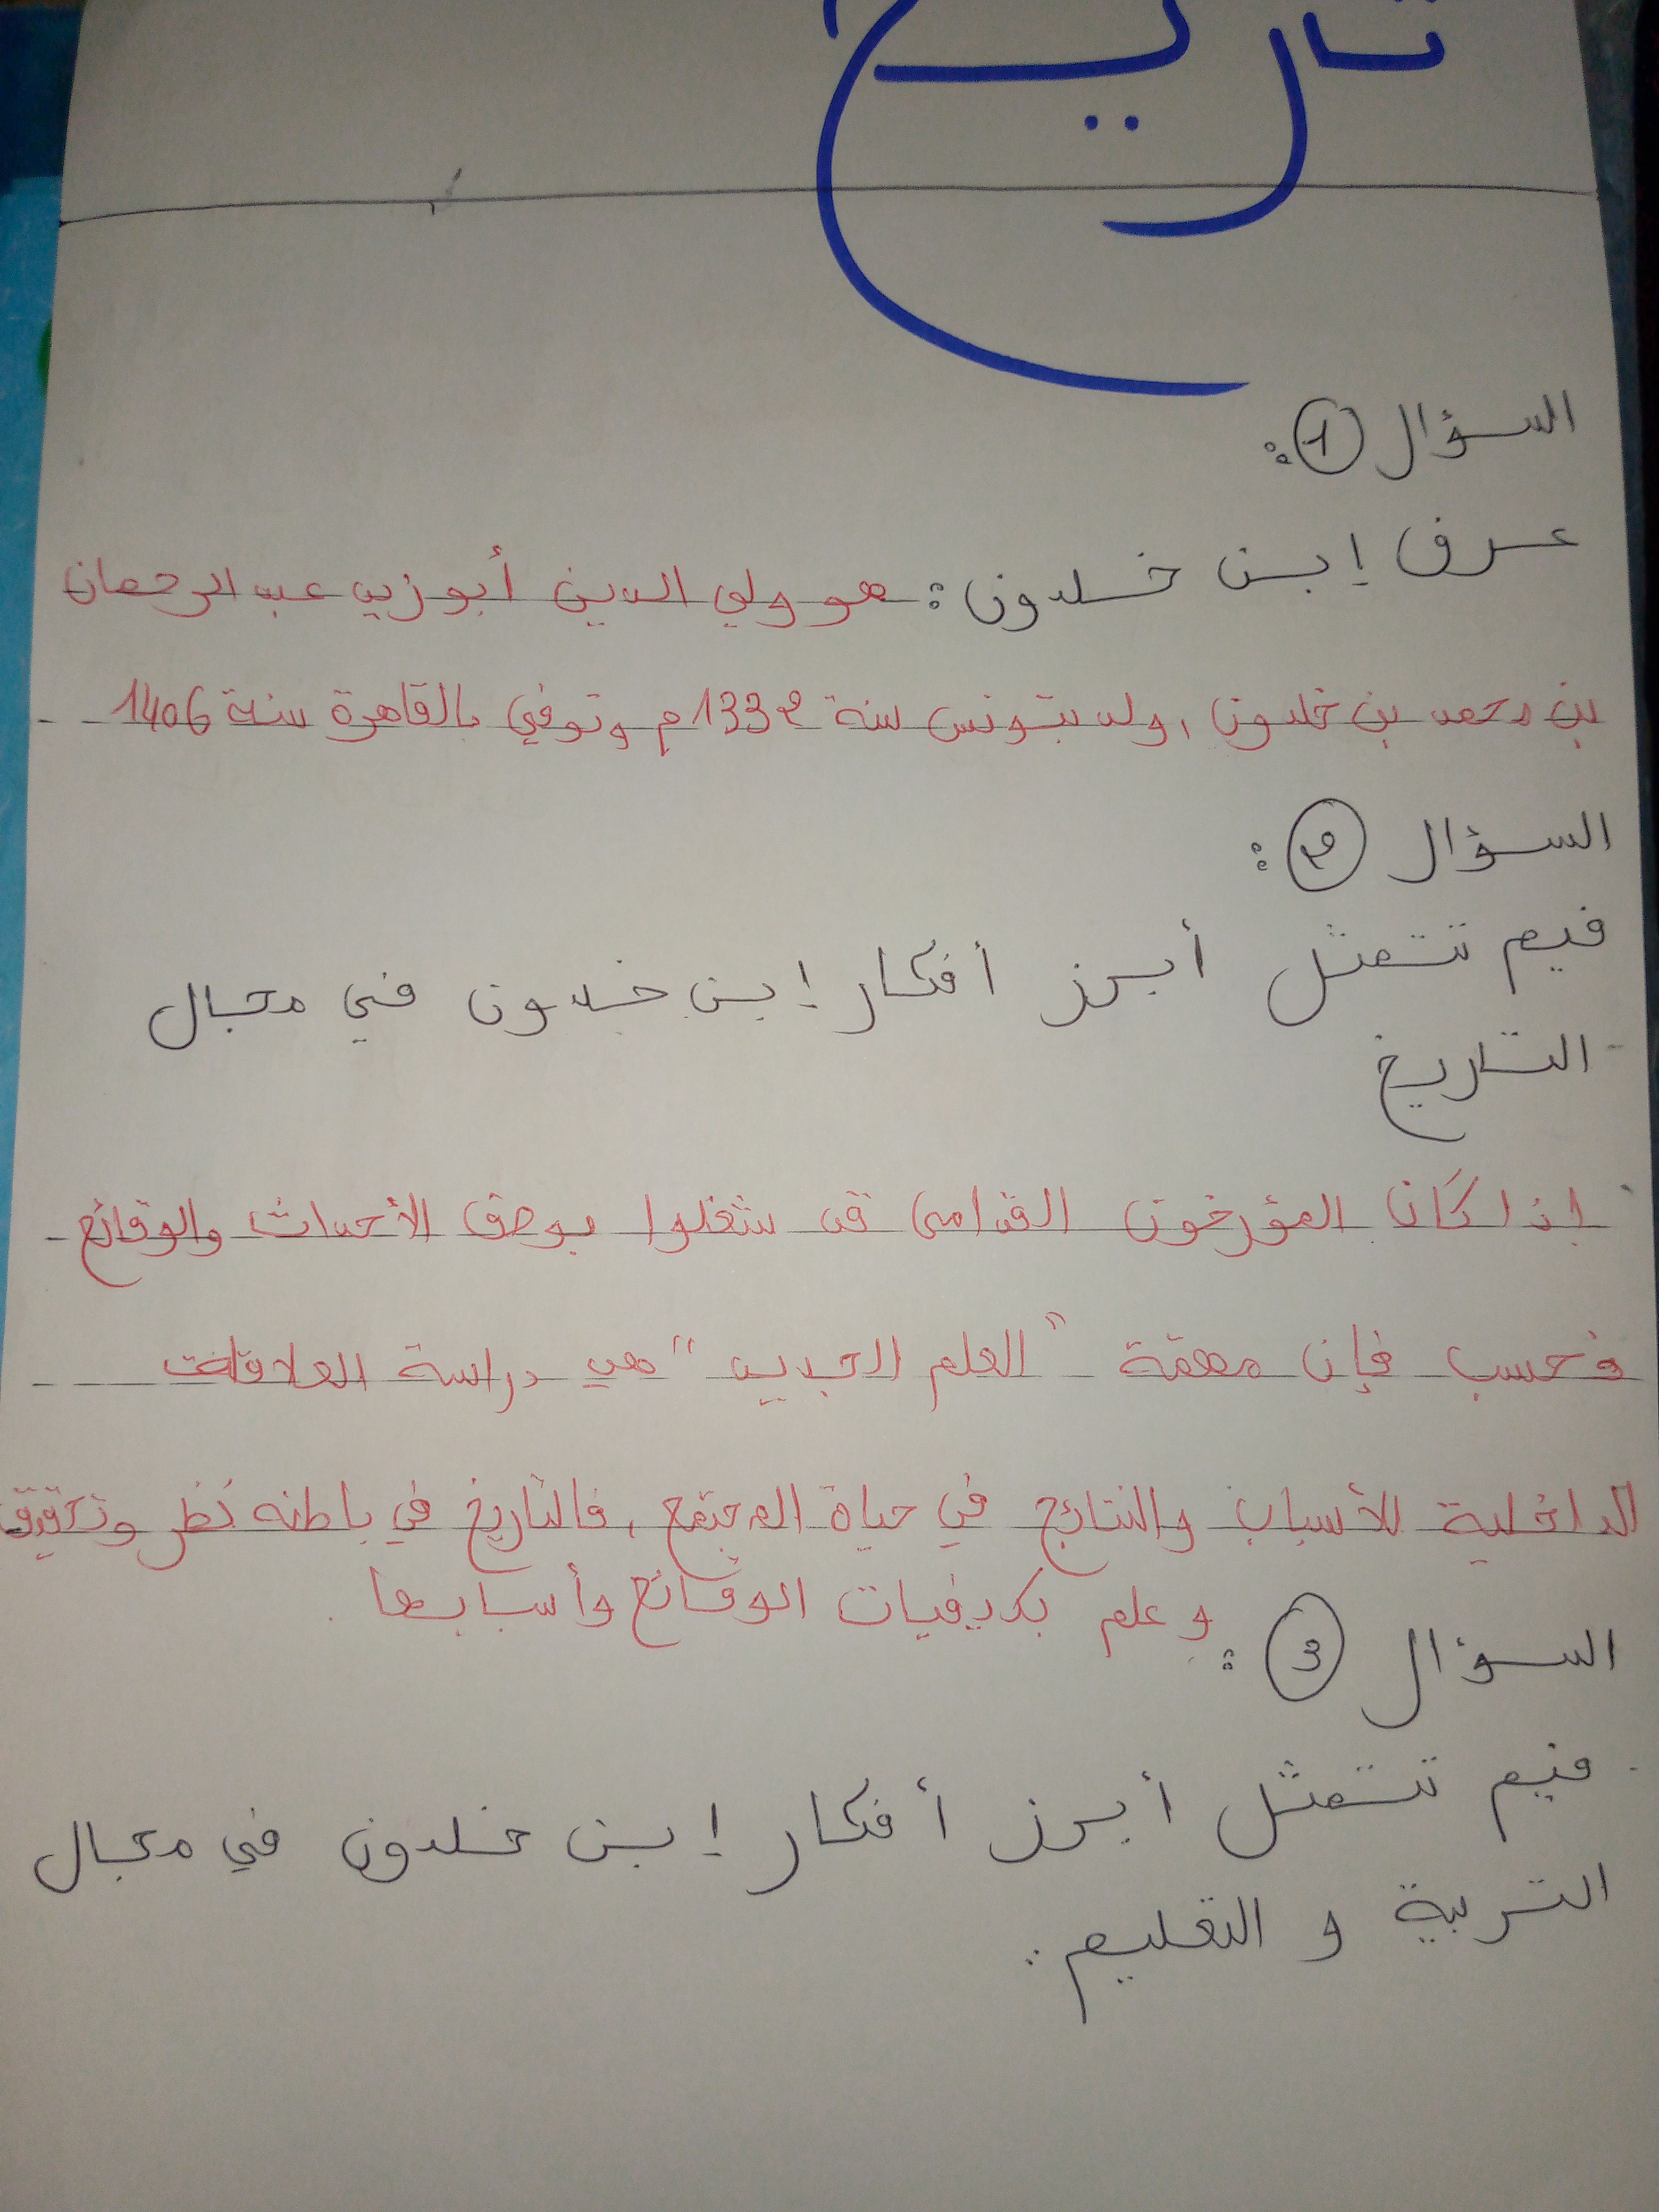 تاريخ
السؤال 1:
عرف إبن خلدون: هو ولي الدين أبو زيد عبد الرحمان
بن محمد بن خلدون، ولد بتونس سنة 1332م وتوفي بالقاهرة سنة 1406
السؤال 2:
فيم تتمثل أبرز أفكار إبن خلدون في مجال
التاريخ
إذا كان المؤرخون القدامى قد شغلوا بوصف الأحداث والوقائع
فحسب فإن مهمة "العلم الجديد" هي دراسة العلاقات
الداخلية للأسباب والنتائج في حياة المجتمع، فالتاريخ في باطنه نظر وتحقيق
وعلم بكيفيات الوقائع وأسبابها.
السؤال 3:
فيم تتمثل أبرز أفكار إبن خلدون في مجال
التربية و التعليم: